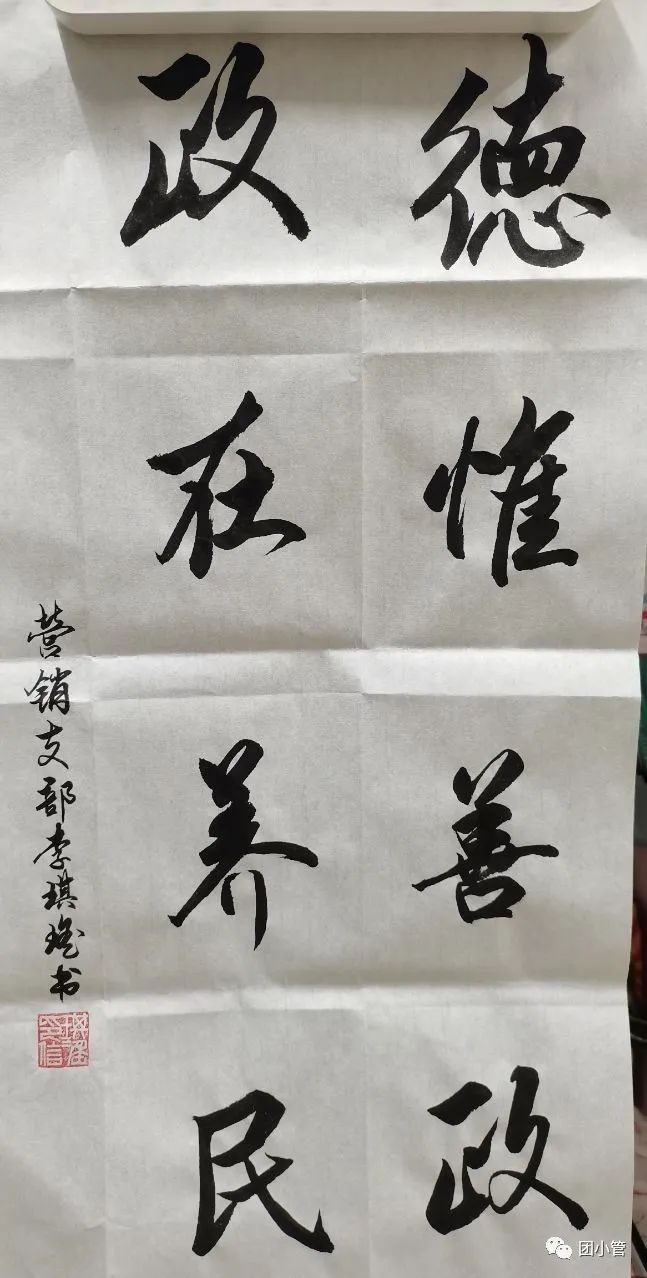 德惟善政
政在养民
营销支部李琪瑶书
团小管